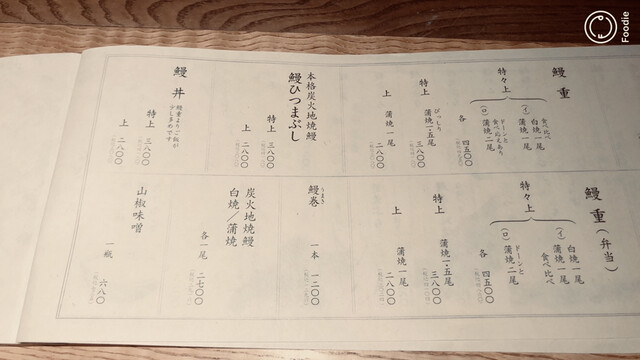 鰻重
特々上
(イ) 白焼一尾
蒲焼一尾
食べ比べ
(ロ) 蒲焼二尾
ドーンと
食べ応えあり
各 四五〇〇
特上 びっしり
蒲焼一・五尾
三八〇〇
上 蒲焼一尾
二八〇〇
本格炭火地焼鰻
鰻ひつまぶし
特上 三八〇〇
上 二八〇〇
鰻丼
鰻重よりご飯が
少し多めです
特上 三八〇〇
上 二八〇〇
鰻重(弁当)
特々上
(イ) 白焼一尾
蒲焼一尾
食べ比べ
(ロ) ドーンと
蒲焼二尾
各 四五〇〇
特上 蒲焼一・五尾
三八〇〇
上 蒲焼一尾
二八〇〇
鰻巻
うまき
一本 一二〇〇
炭火地焼鰻
白焼/蒲焼
各一尾 二七〇〇
山椒味噌
一瓶 六八〇
Foodie